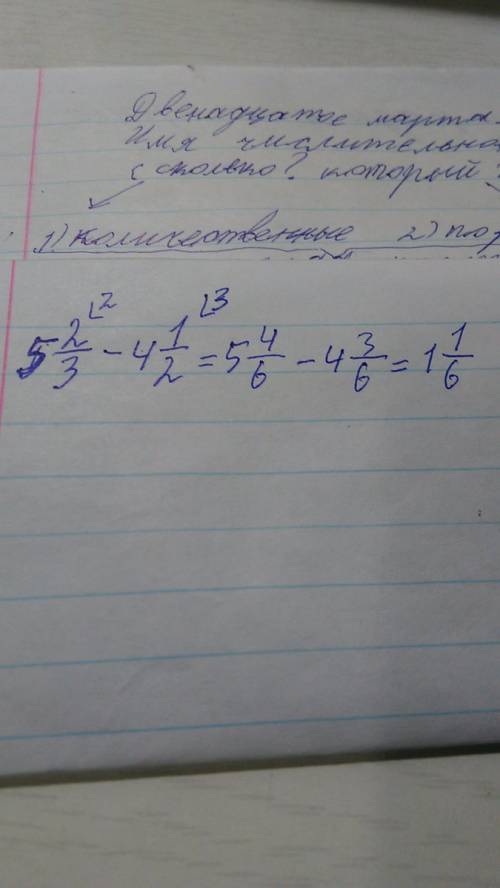 Двенадцатое марта.
Имя числительно
( сколько? который ?
1) количественные 2) пор
5 2/3 ⌊2 - 4 1/2 ⌊3 = 5 4/6 - 4 3/6 = 1 1/6